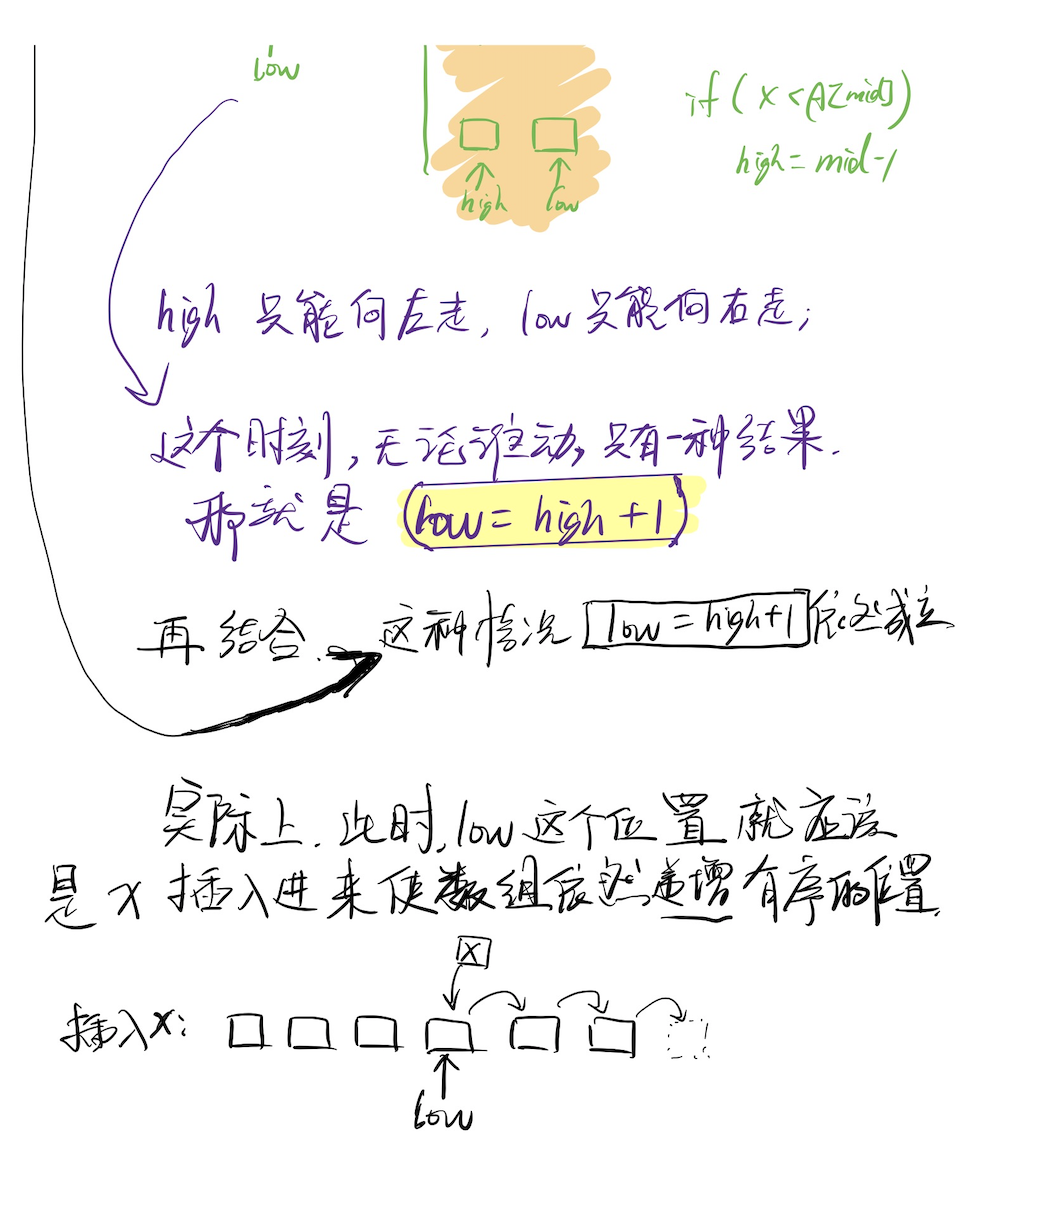 low
if (x < A[mid])
high = mid-1
high low
high 只能向左走, low 只能向右走;
这个时刻, 无论谁动, 只有一种结果.
那就是 (low = high + 1)
再结合. 这种情况 low = high+1 依然成立
实际上. 此时, low 这个位置就应该
是 x 插入进来使数组依然递增有序的位置.
x
插入x:
low